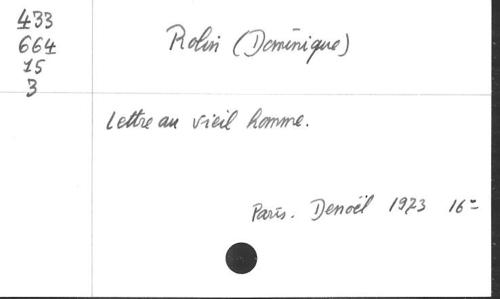 433
664
15
3
Rolin (Dominique)
Lettre au vieil homme.
Paris. Denoël 1973 16=